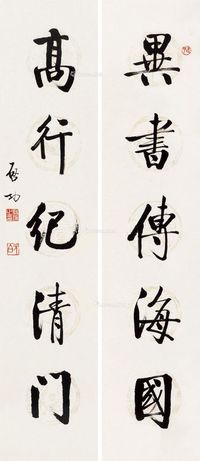 異書傳海國
高行紀清门
啟功